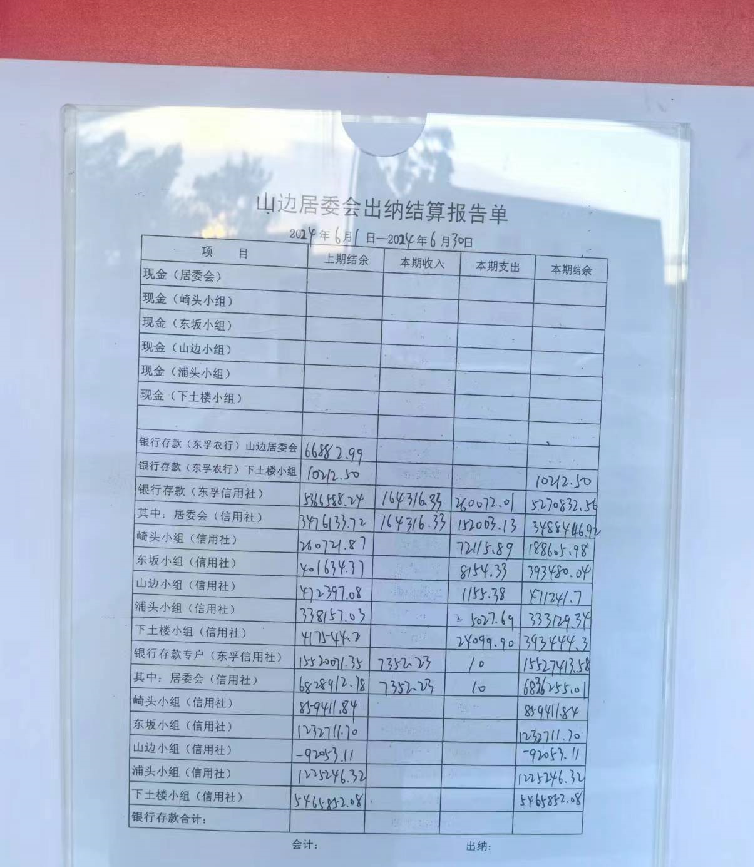 山边居委会出纳结算报告单
2024年6月1日—2024年6月30日
项 目 上期结余 本期收入 本期支出 本期结余
现金（居委会）
现金（崎头小组）
现金（东坂小组）
现金（山边小组）
现金（浦头小组）
现金（下土楼小组）
银行存款（东孚农行）山边居委会 66882.99
银行存款（东孚农行）下土楼小组 10212.50 10212.50
银行存款（东孚信用社） 5366588.24 164316.33 260072.01 5270832.56
其中：居委会（信用社） 3476133.72 164316.33 152003.13 3488446.92
崎头小组（信用社） 260721.87 72115.89 188605.98
东坂小组（信用社） 401634.37 8154.33 393480.04
山边小组（信用社） 472397.08 1155.38 471241.7
浦头小组（信用社） 338157.03 5027.69 333129.34
下土楼小组（信用社） 417544.2 24099.90 393444.3
银行存款专户（东孚信用社） 15520071.35 7352.23 10 15527413.58
其中：居委会（信用社） 6828912.78 7352.23 10 6836255.01
崎头小组（信用社） 859411.84 859411.84
东坂小组（信用社） 1232711.70 1232711.70
山边小组（信用社） -92053.11 -92053.11
浦头小组（信用社） 1225246.32 1225246.32
下土楼小组（信用社） 5465852.08 5465852.08
银行存款合计：
会计： 出纳：